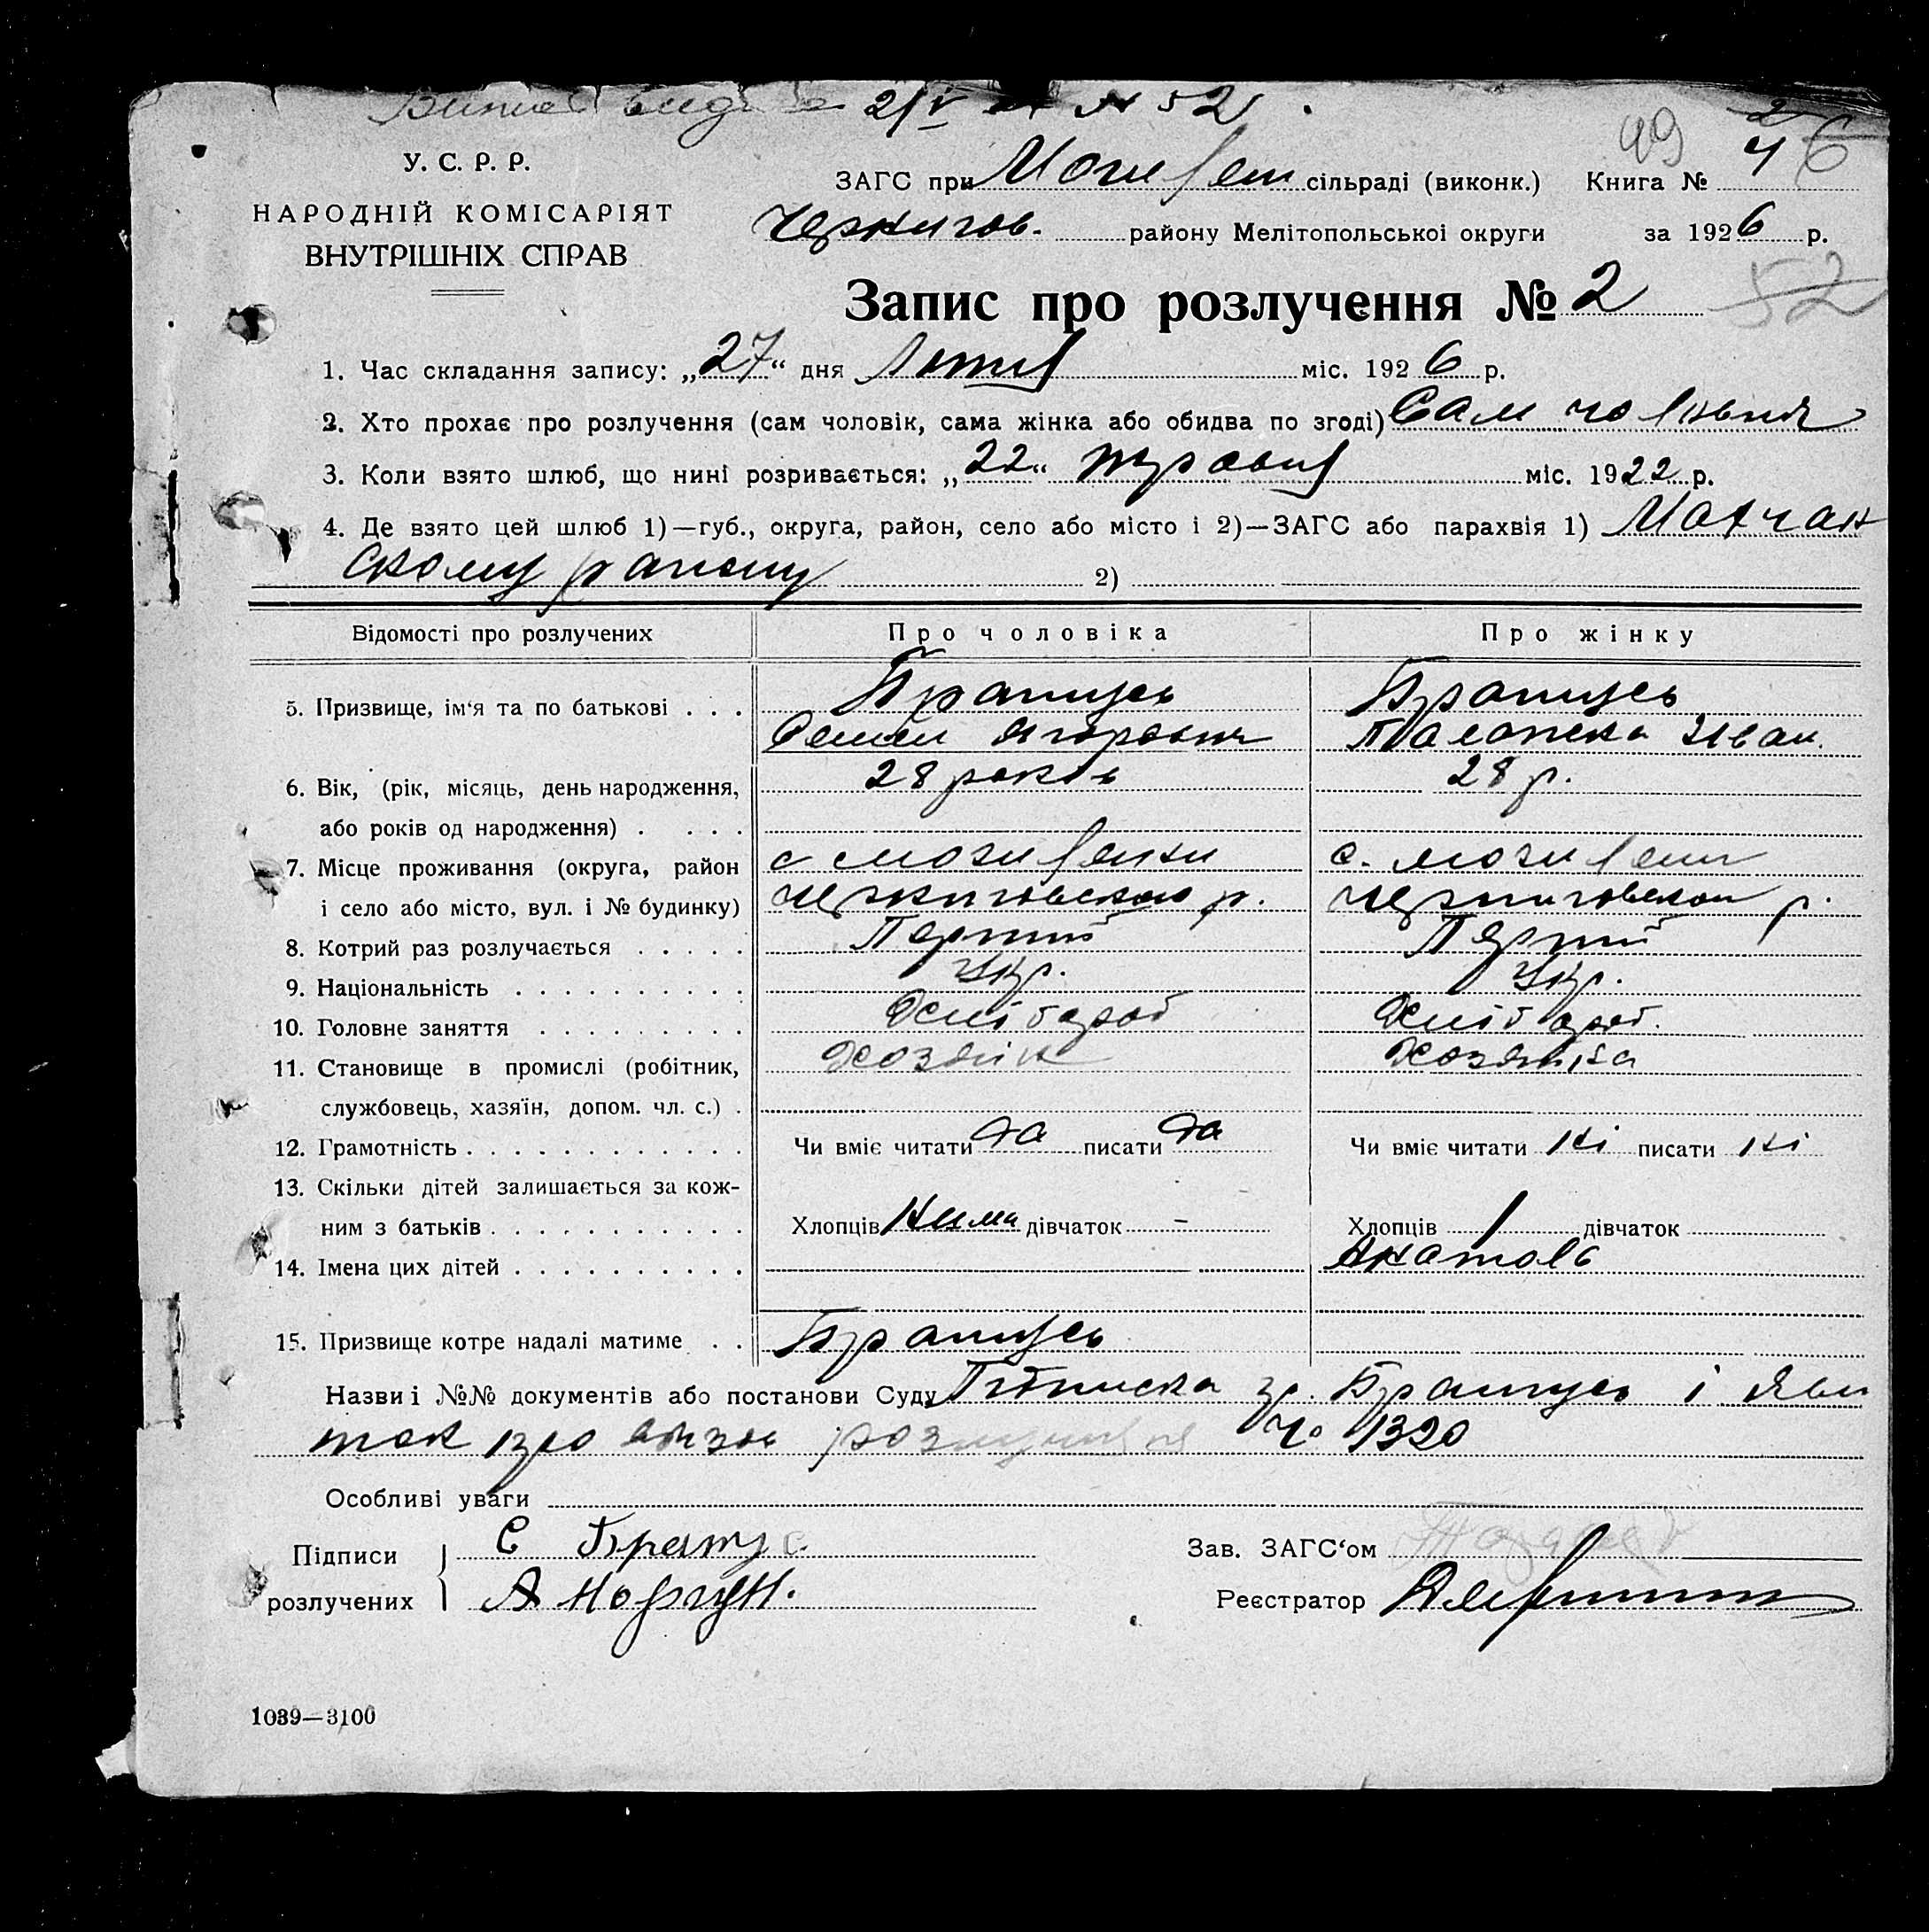 2/V № 52
49 2 4 6
У. С. Р. Р.
НАРОДНІЙ КОМІСАРІЯТ
ВНУТРІШНІХ СПРАВ
ЗАГС при Могилян сільраді (виконк.) Книга №
Чернигов. району Мелітопольської округи за 1926 р.
Запис про розлучення № 2 52
1. Час складання запису: „27“ дня Лютня міс. 1926 р.
2. Хто прохає про розлучення (сам чоловік, сама жінка або обидва по згоді) Сам
3. Коли взято шлюб, що нині розривається: „22“ травня міс. 1922 р.
4. Де взято цей шлюб 1)—губ., округа, район, село або місто і 2)—ЗАГС або парахвія 1)
скому району 2)
Відомості про розлучених Про чоловіка Про жінку
5. Призвище, ім‘я та по батькові . . . Братусь Братусь
Семен Ягорович Иван.
6. Вік, (рік, місяць, день народження, 28 років 28 р.
або років од народження) . . . .
7. Місце проживання (округа, район с. с.
і село або місто, вул. і № будинку) р. р.
8. Котрий раз розлучається . . . . . Перший Перший
9. Національність . . . . . . . . . . Укр. Укр.
10. Головне заняття . . . . . . . . . Хлібороб Хлібороб.
11. Становище в промислі (робітник, Хозяїн Хозяйка
службовець, хазяїн, допом. чл. с.) .
12. Грамотність . . . . . . . . . . . . Чи вміє читати да писати да Чи вміє читати ні писати ні
13. Скільки дітей залишається за кож-
ним з батьків . . . . . . . . . . . Хлопців Нима дівчаток - Хлопців 1 дівчаток
14. Імена цих дітей . . . . . . . . . . Анатоль
15. Призвище котре надалі матиме . . Братусь
Назви і №№ документів або постанови Суду Підписка гр. Братусь і
про розлучення Ч. 1320
Особливі уваги
Підписи С Братус Зав. ЗАГС‘ом
розлучених Реєстратор
1039—3100